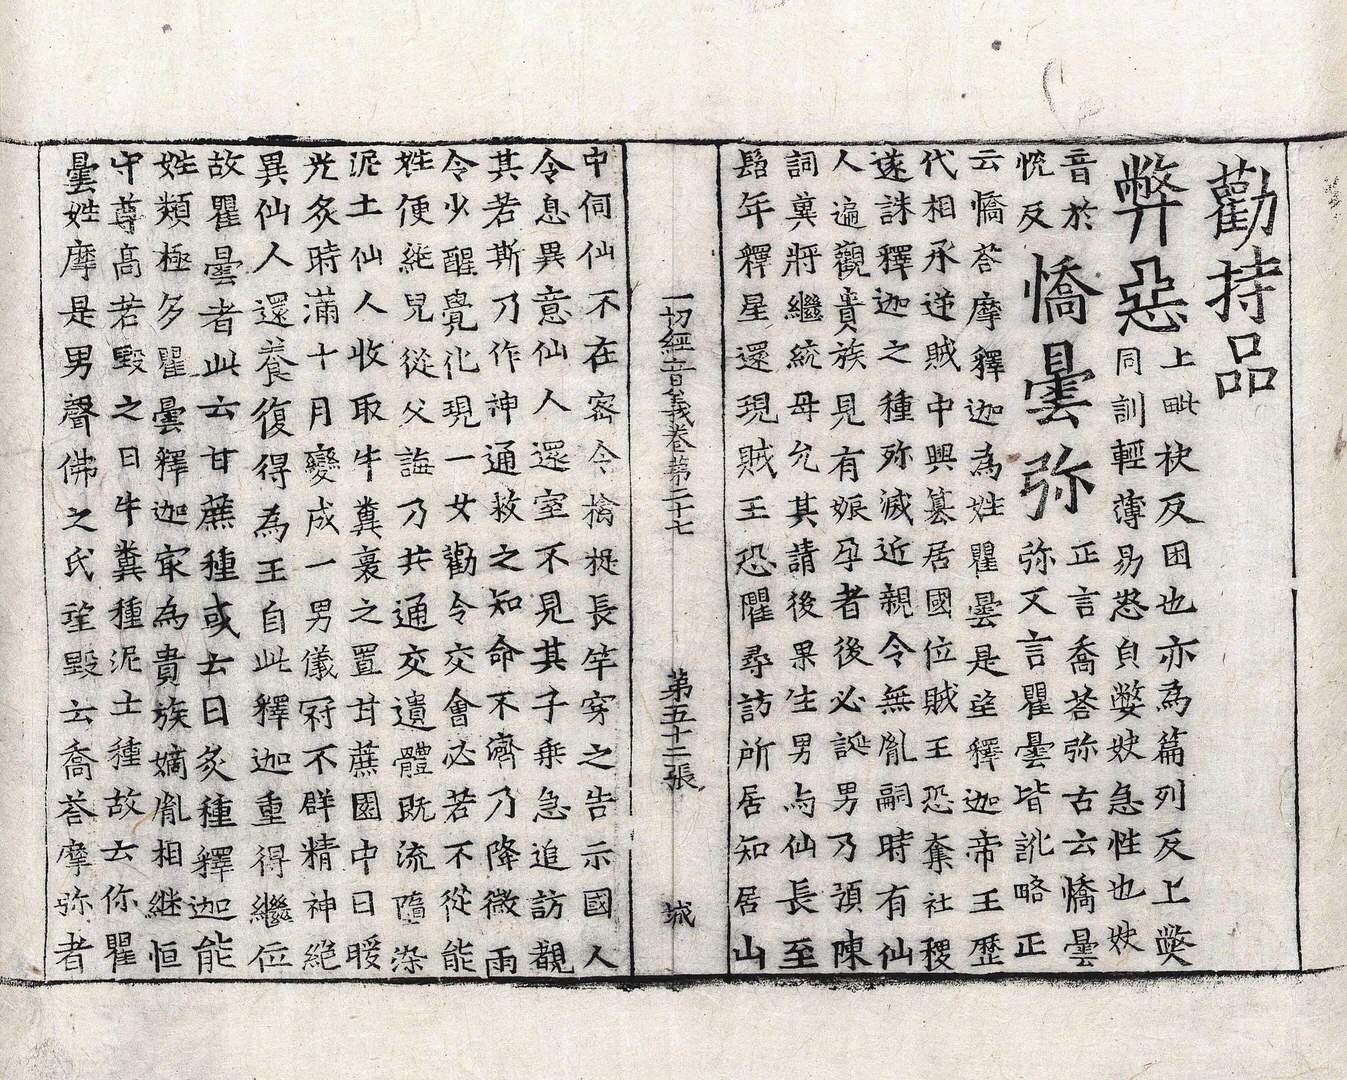 勸持品
弊惡
上毗袂反困也亦為篇列反上獘
同訓輕薄易怒皃獘妜急性也妜
音於
怳反
憍曇弥
正言喬荅弥古云憍曇
弥又言瞿曇皆訛略正
云憍荅摩釋迦為姓瞿曇是望釋迦帝王歷
代相承逆賊中興篡居國位賊王恐奪社稷
遂誅釋迦之種殄滅近親令無胤嗣時有仙
人遍觀貴族見有娠孕者後必誕男乃預陳
詞冀將繼統母允其請後果生男与仙長至
髫年釋星還現賊王恐懼尋訪所居知居山
一切經音義卷第二十七
第五十二張
城
中伺仙不在密令擒捉長竿穿之告示國人
令息異意仙人還室不見其子乘急追訪覩
其若斯乃作神通救之知命不濟乃降微雨
令少醒覺化現一女勸令交會必若不從能
姓便絶兒從父誨乃共通交遺體既流墮染
泥土仙人收取牛糞裹之置甘蔗園中日暖
光炙時滿十月變成一男儀冠不群精神絕
異仙人還養復得為王自此釋迦重得繼位
故瞿曇者此云甘蔗種或云日炙種釋迦能
姓類極多瞿曇釋迦家為貴族嫡胤相継恒
守尊高若毀之曰牛糞種泥土種故云你瞿
曇姓摩是男聲佛之氏望毀云喬荅摩弥者